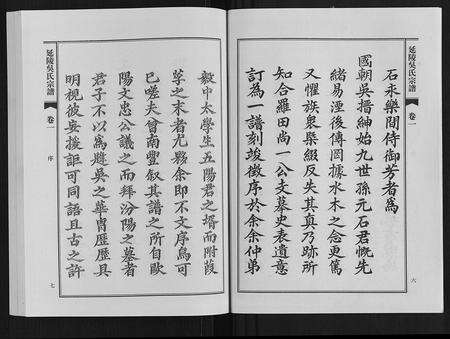 延陵吳氏宗譜
卷一
石永樂間侍御芳者為
國朝吳搢紳始九世孫元石君慨先
緒易湮後傳罔據水木之念更篤
又懼族眾槩綴反失其真乃跡所
知合羅田尚一公文墓史表遺意
訂為一譜刻竣徵序於余余仲弟
六
延陵吳氏宗譜
卷一
序
毅中太學生五陽君之壻而附葭
莩之末者尤夥余即不文序烏可
已嗟夫曾南豐叙其譜之所自歐
陽文忠公議之而拜汾陽之墓者
君子不以為趙吳之華冑歷歷具
明視彼妄援詎可同語且古之許
七